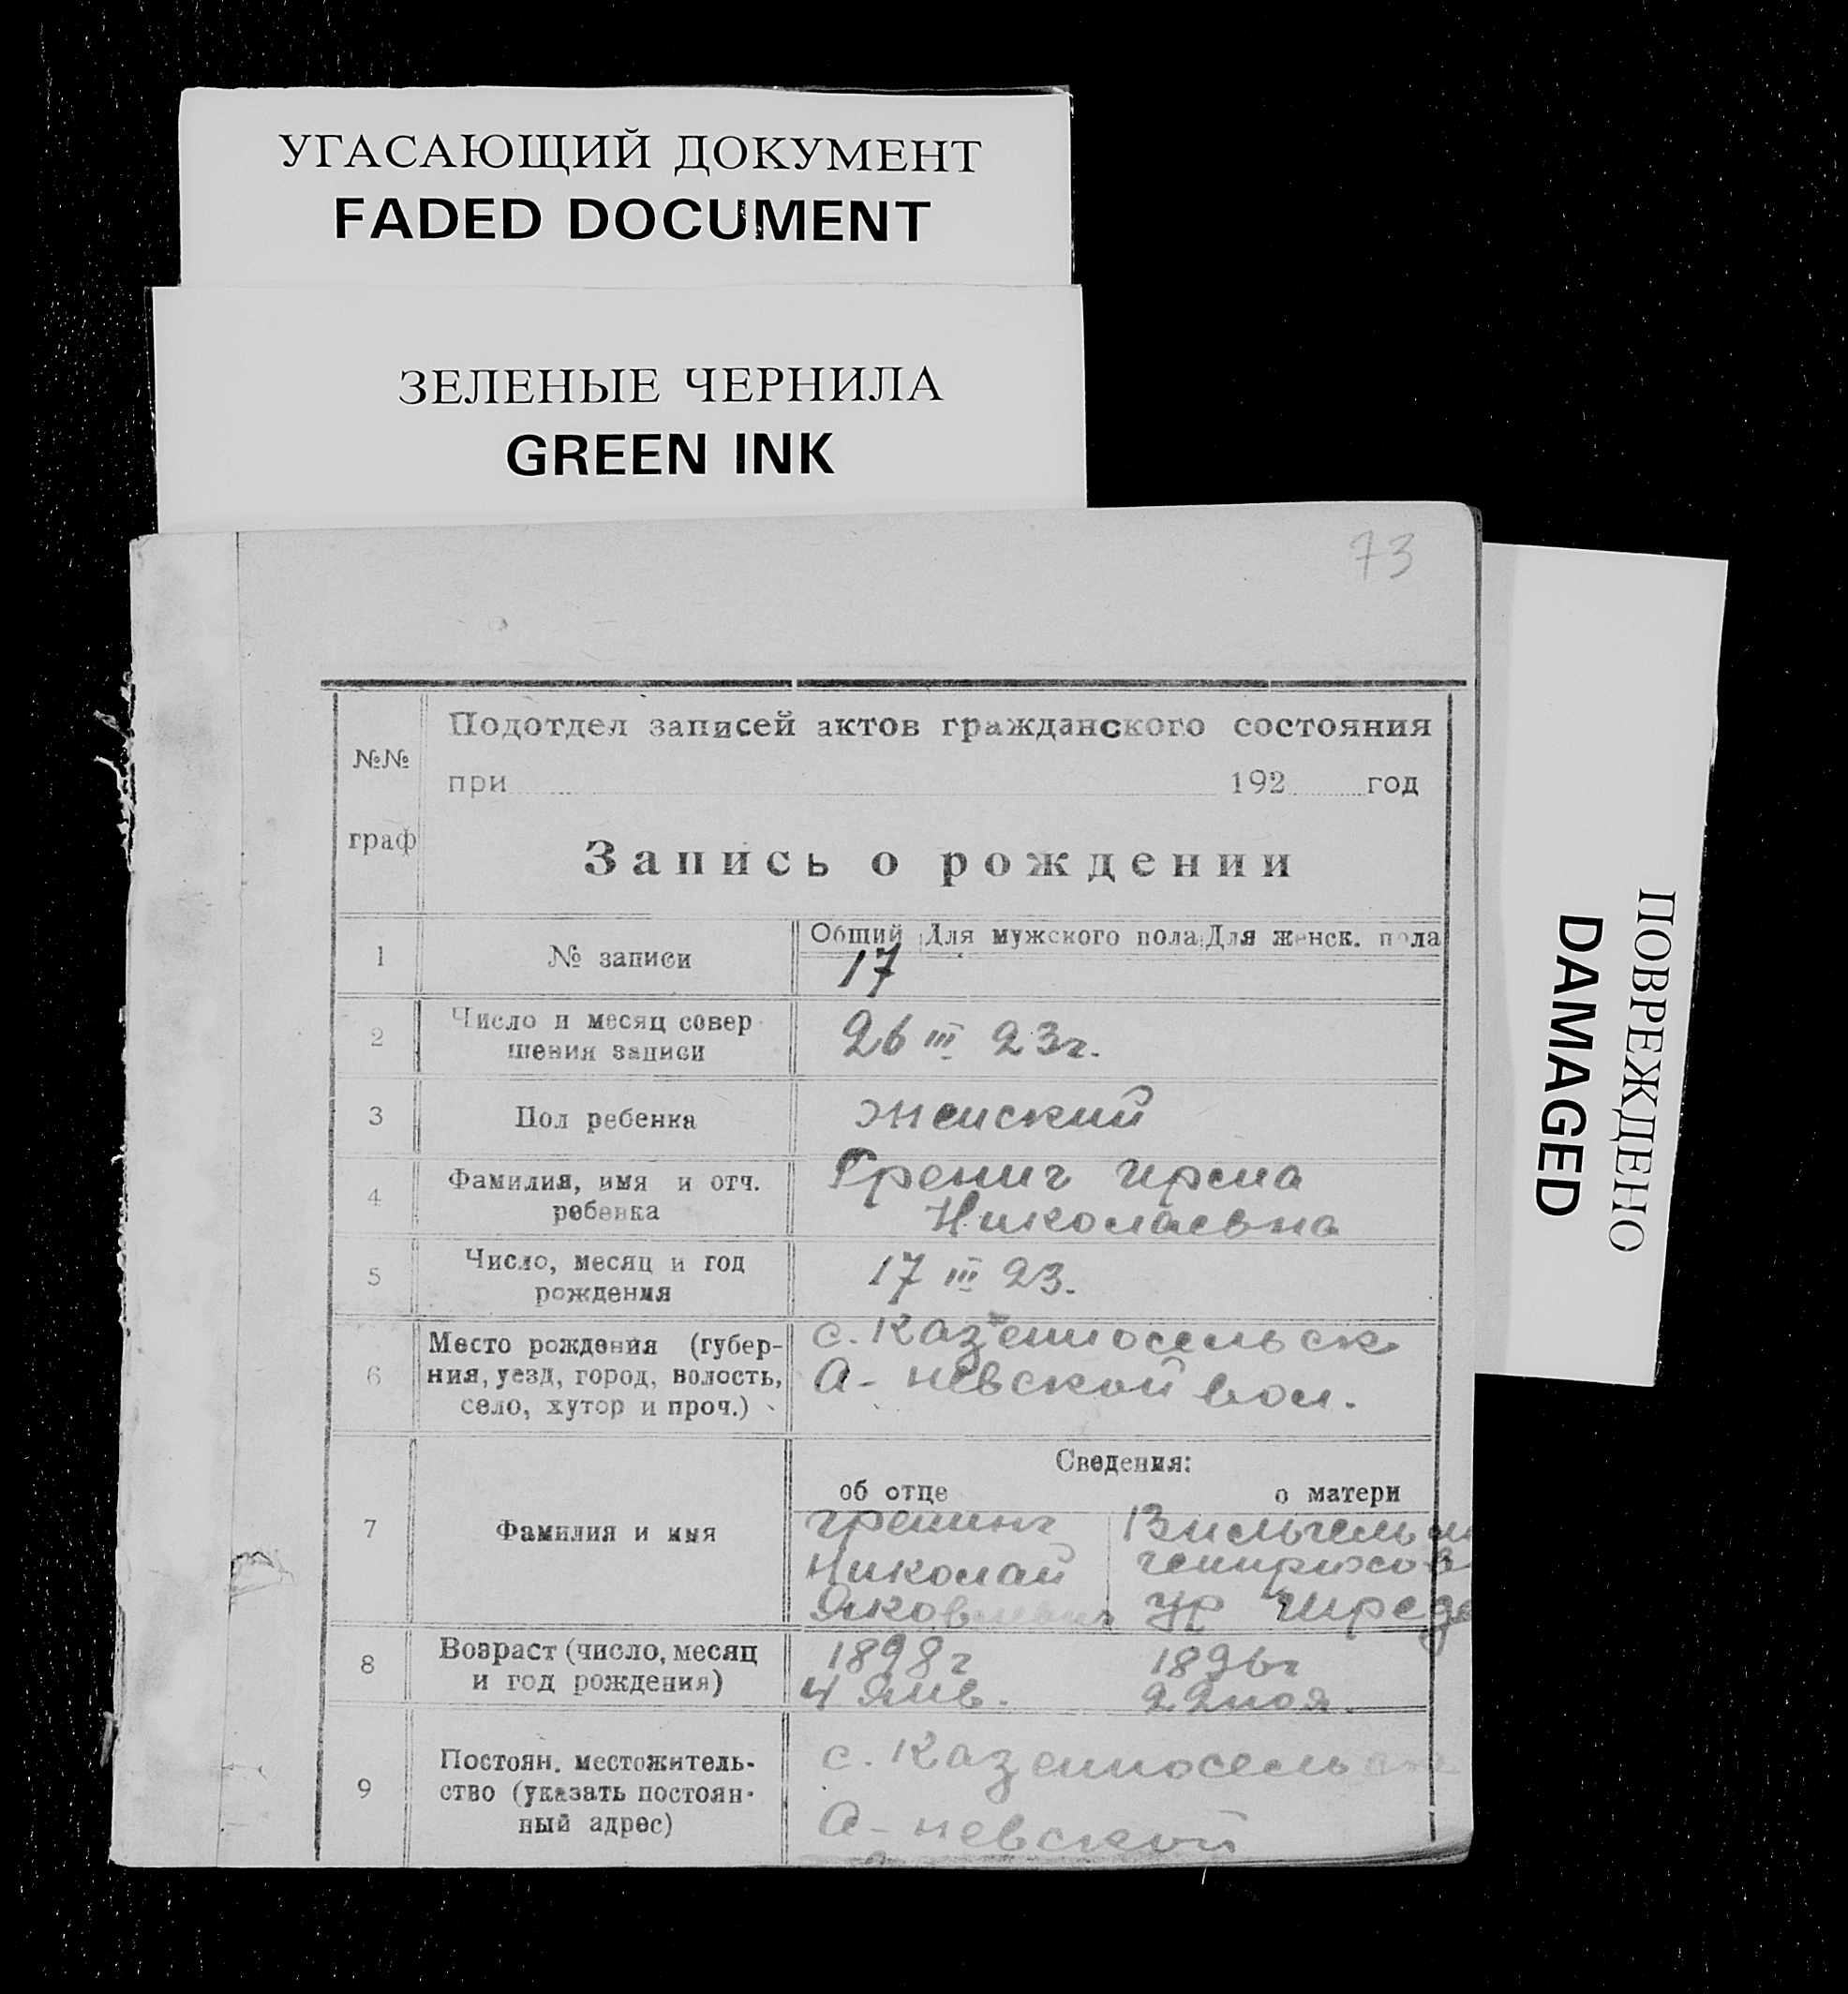 УГАСАЮЩИЙ ДОКУМЕНТ
FADED DOCUMENT
ЗЕЛЕНЫЕ ЧЕРНИЛА
GREEN INK
ПОВРЕЖДЕНО
DAMAGED
73
№№ граф
Подотдел записей актов гражданского состояния
при 192 год
Запись о рождении
1 № записи
Общий Для мужского пола Для женск. пола
17
2 Число и месяц совер
шения записи
26 III 23г.
3 Пол ребенка
женский
4 Фамилия, имя и отч.
ребенка
Грениг Ирена
Николаевна
5 Число, месяц и год
рождения
17 III 23.
6 Место рождения (губер-
ния, уезд, город, волость,
село, хутор и проч.)
с. Казенносельск
А-невской вол.
Сведения:
об отце о матери
7 Фамилия и имя
Николай
Яковлевич
Вильгельм
ур Шреде
8 Возраст (число, месяц
и год рождения)
1898г
4 Янв.
1896г
22 ноя.
9 Постоян. местожитель-
ство (указать постоян-
ный адрес)
с. Казенносельск
А-невской